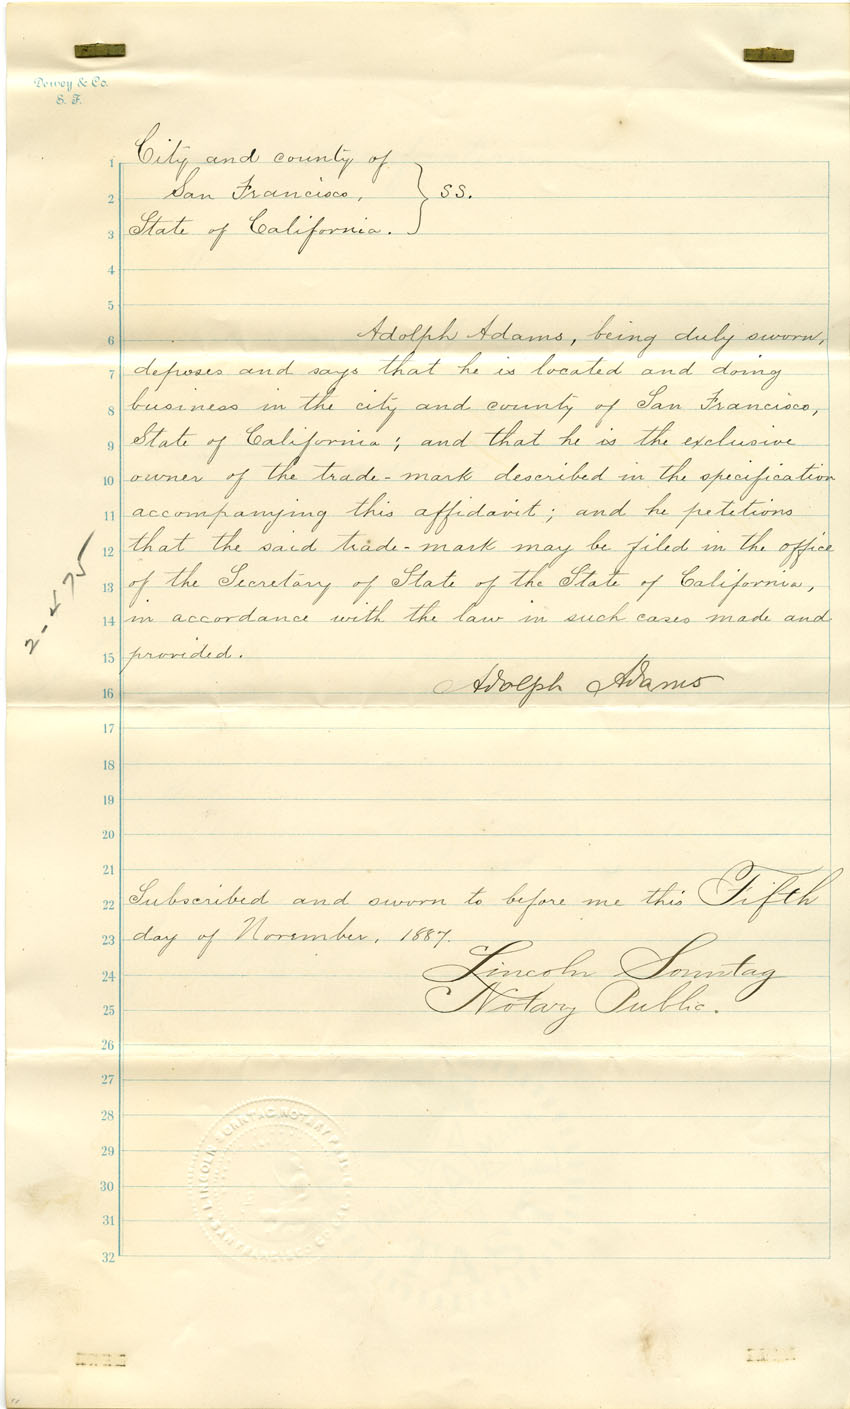 Dewey & Co.
S. F.
1 City and county of
2 San Francisco, } ss.
3 State of California.
4
5
6 Adolph Adams, being duly sworn,
7 deposes and says that he is located and doing
8 business in the city and county of San Francisco,
9 State of California; and that he is the exclusive
10 owner of the trade-mark described in the specification
11 accompanying this affidavit; and he petitions
12 that the said trade-mark may be filed in the office
13 of the Secretary of State of the State of California,
14 in accordance with the law in such cases made and
15 provided.
16 Adolph Adams
17
18
19
20
21
22 Subscribed and sworn to before me this Fifth
23 day of November, 1887.
24 Lincoln Sonntag
25 Notary Public.
26
27
28
29
30
31
32
LINCOLN SONNTAG NOTARY PUBLIC
SAN FRANCISCO CO. CAL.